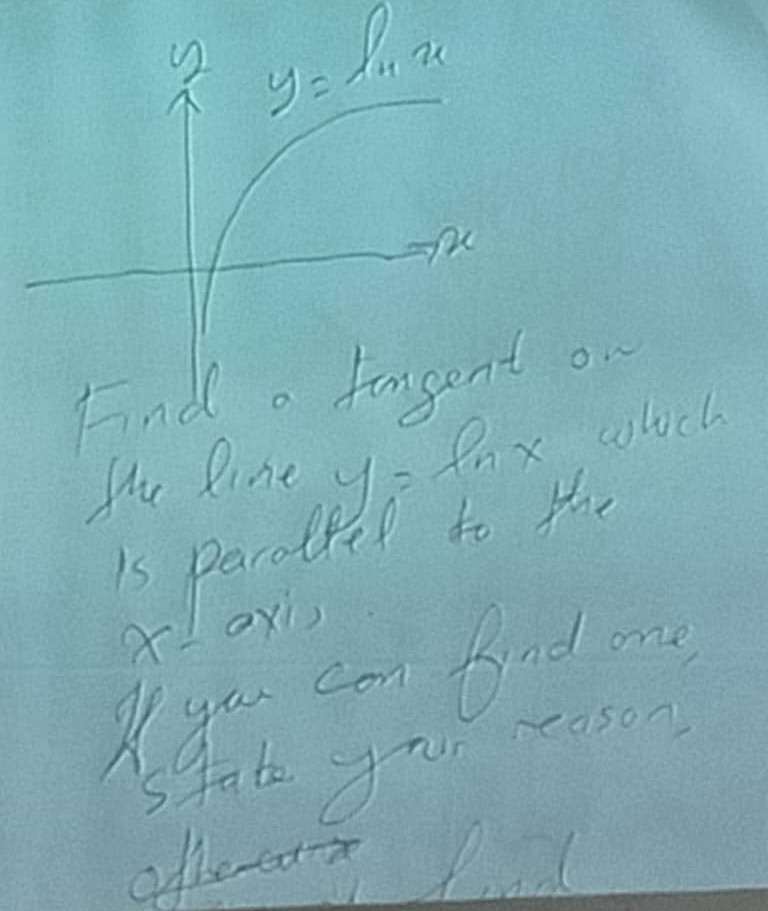 y
y = ln x
x
Find a tangent on
the line y = ln x which
is parallel to the
x-axis.
If you can find one,
state your reason,
find